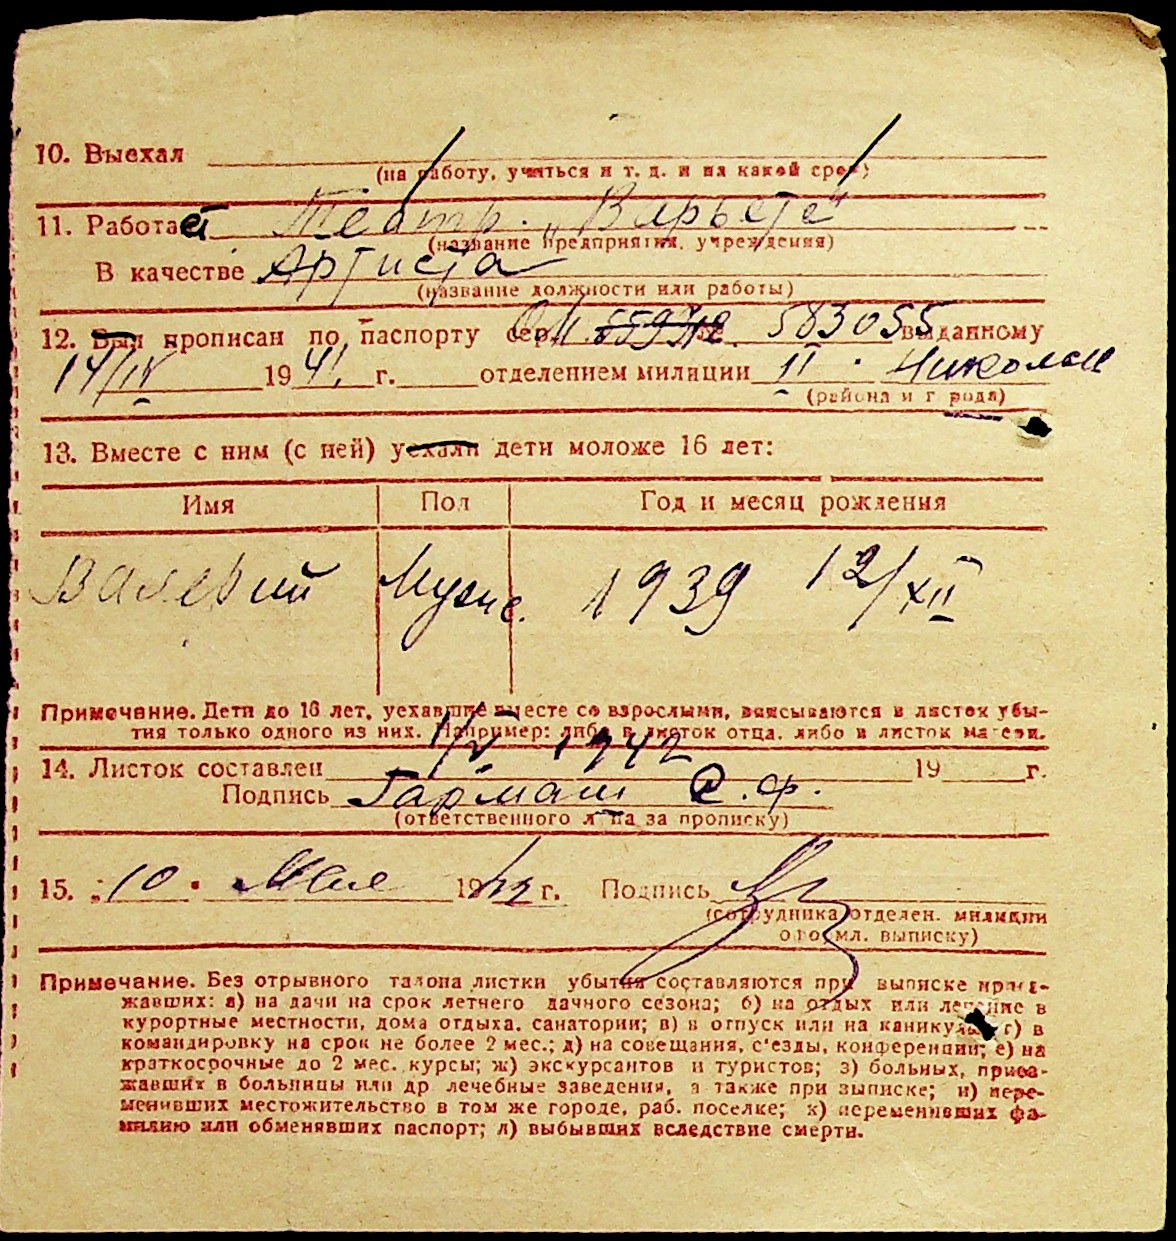 10. Выехал
(на работу, учиться и т. д. и на какой срок)
11. Работает Театр. „Варьете"
(название предприятия, учреждения)
В качестве Артиста
(название должности или работы)
12. Был прописан по паспорту сер. № 583055 выданному
14/IV 1941. г. отделением милиции II. Николаев
(района и города)
13. Вместе с ним (с ней) уехали дети моложе 16 лет:
Имя Пол Год и месяц рождения
Валерий Мужс. 1939 12/XII
Примечание. Дети до 16 лет, уехавшие вместе со взрослыми, вписываются в листок убы-
тия только одного из них. Например: либо в листок отца, либо в листок матери.
1/V. 1942
14. Листок составлен 19 г.
Подпись Гармаш С. Ф.
(ответственного лица за прописку)
15. „10. Мая 1942 г. Подпись
(сотрудника отделен. милиции
оформл. выписку)
Примечание. Без отрывного талона листки убытия составляются при выписке приез-
жавших: а) на дачи на срок летнего дачного сезона; б) на отдых или лечение в
курортные местности, дома отдыха, санатории; в) в отпуск или на каникулы; г) в
командировку на срок не более 2 мес.; д) на совещания, с'езды, конференции; е) на
краткосрочные до 2 мес. курсы; ж) экскурсантов и туристов; з) больных, приез-
жавших в больницы или др лечебные заведения, а также при выписке; и) пере-
менивших местожительство в том же городе, раб. поселке; к) переменивших фа-
милию или обменявших паспорт; л) выбывших вследствие смерти.